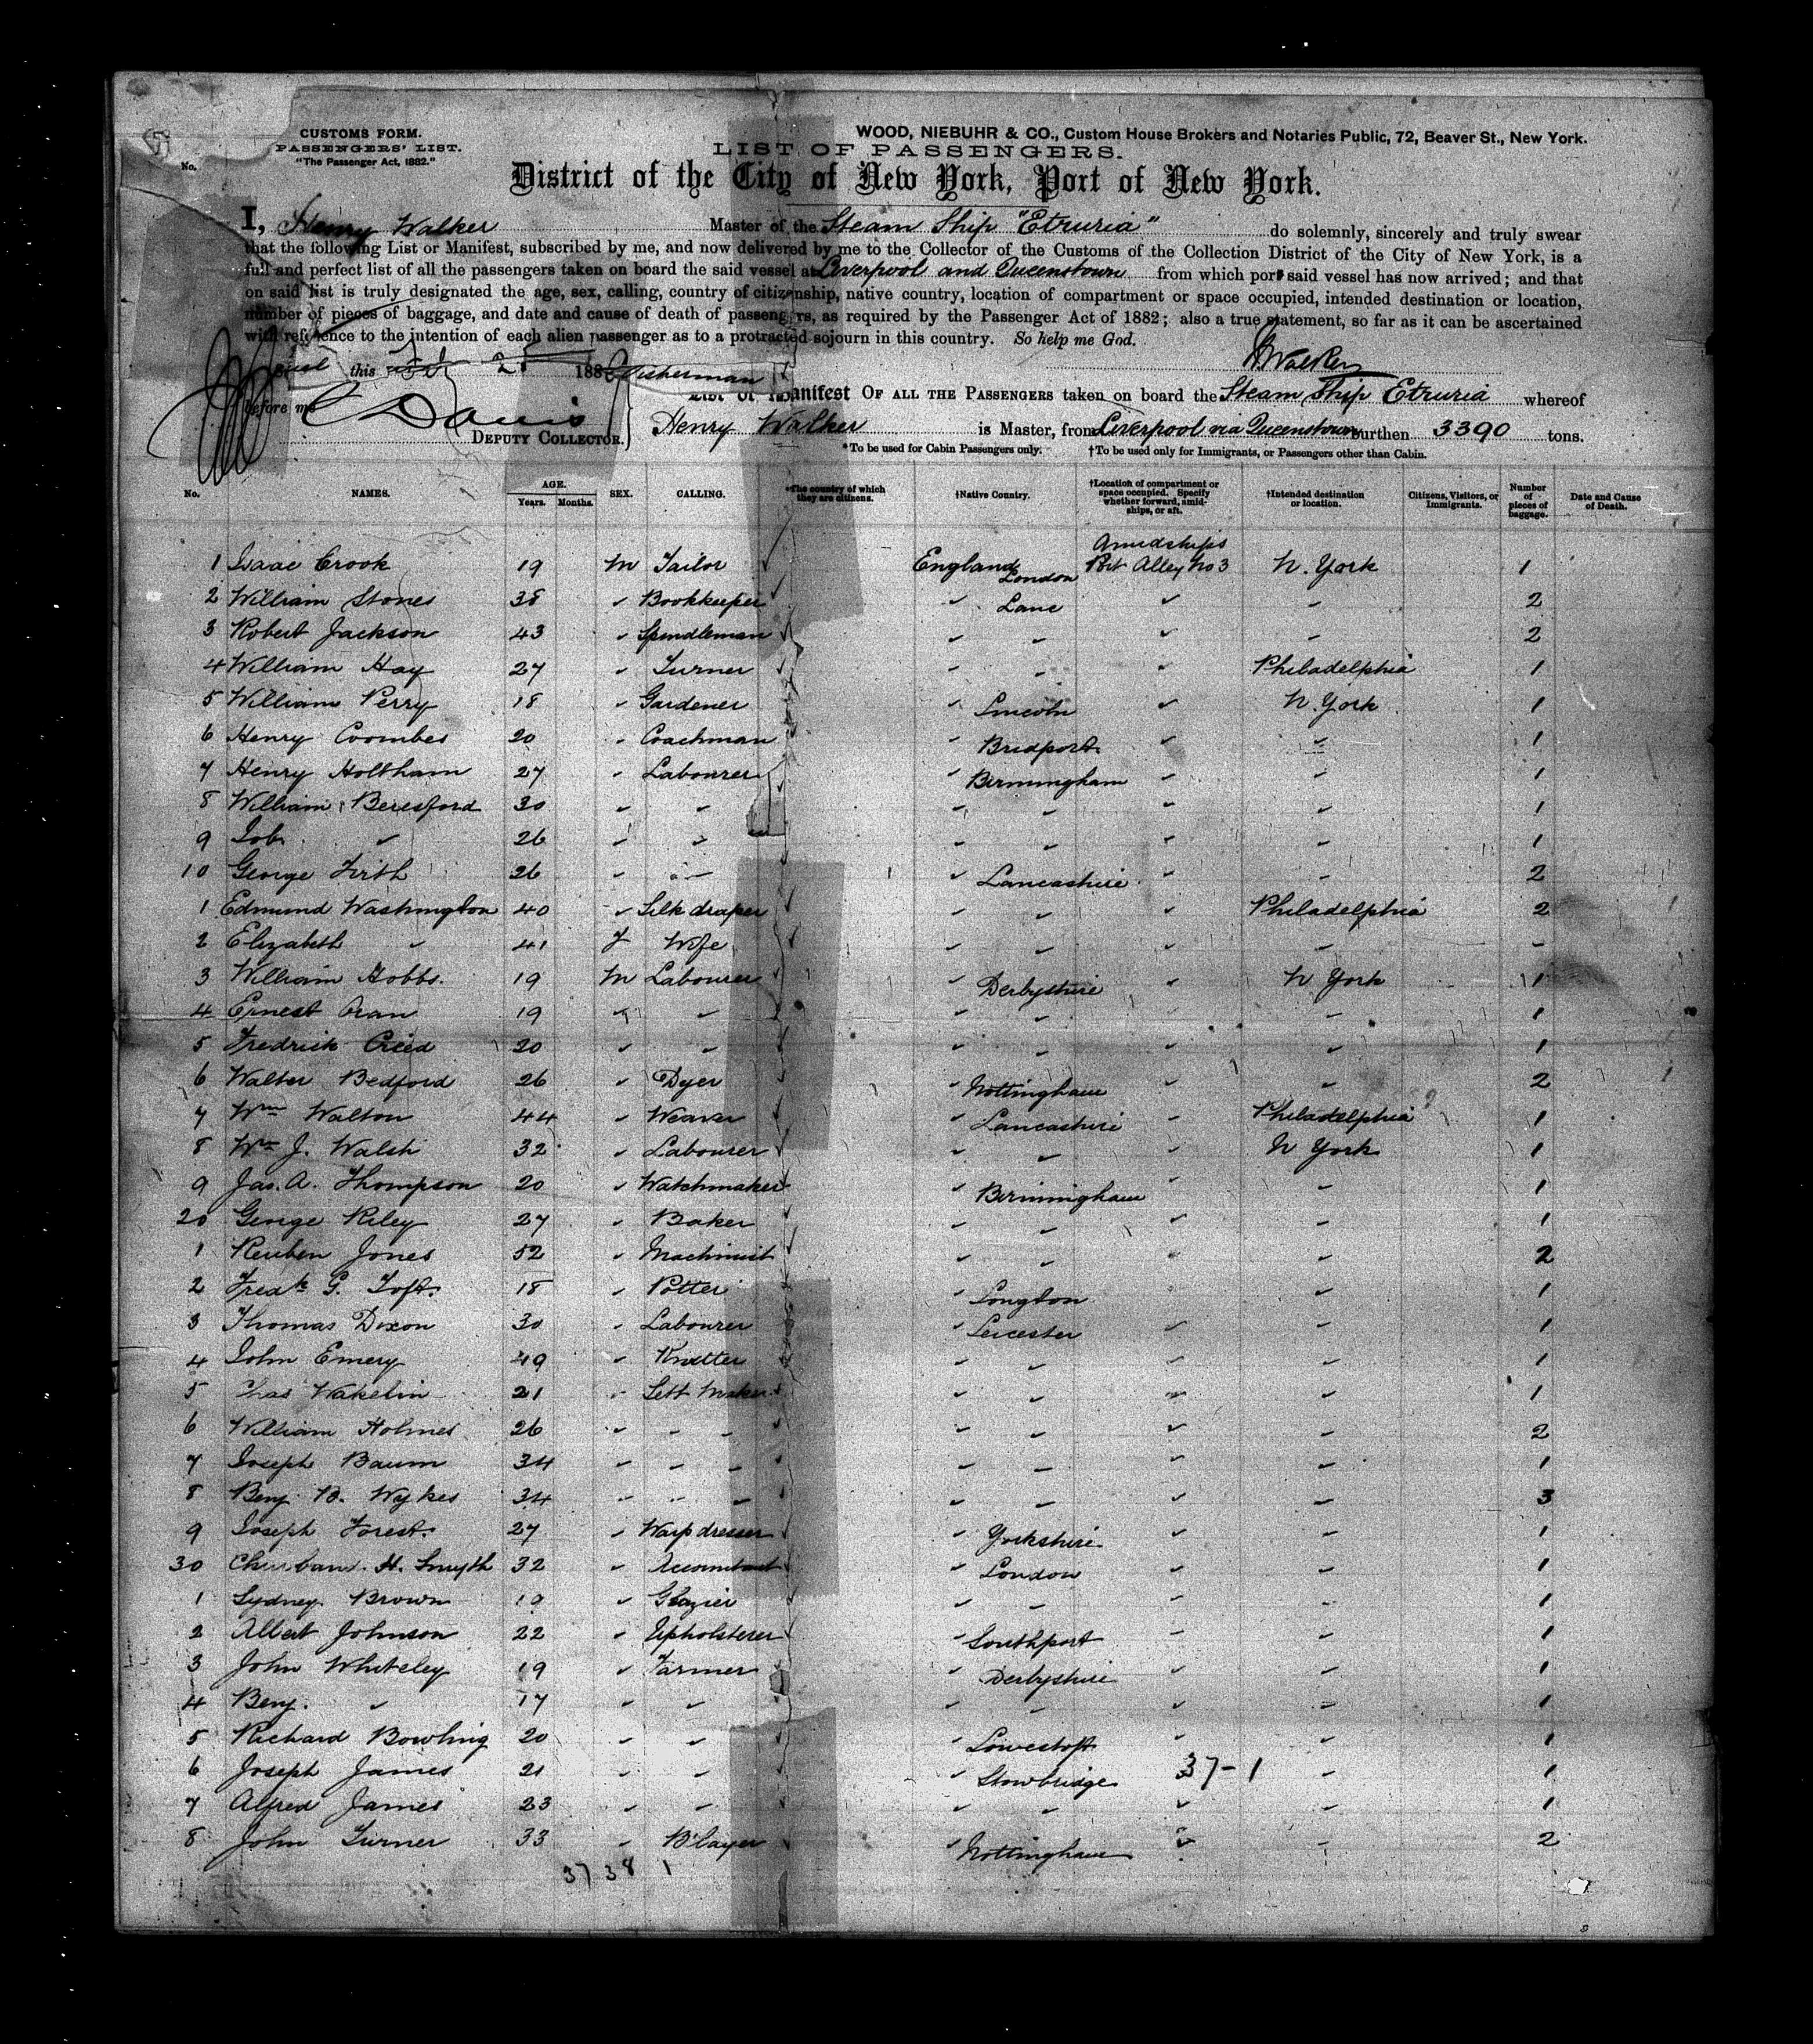 CUSTOMS FORM.
PASSENGERS' LIST.
"The Passenger Act, 1882."
No.
WOOD, NIEBUHR & CO., Custom House Brokers and Notaries Public, 72, Beaver St., New York.
LIST OF PASSENGERS.
District of the City of New York, Port of New York.
I, Henry Walker Master of the Steam Ship "Etruria" do solemnly, sincerely and truly swear
that the following List or Manifest, subscribed by me, and now delivered by me to the Collector of the Customs of the Collection District of the City of New York, is a
full and perfect list of all the passengers taken on board the said vessel at Liverpool and Queenstown from which port said vessel has now arrived; and that
on said list is truly designated the age, sex, calling, country of citizenship, native country, location of compartment or space occupied, intended destination or location,
number of pieces of baggage, and date and cause of death of passengers, as required by the Passenger Act of 1882; also a true statement, so far as it can be ascertained
with reference to the intention of each alien passenger as to a protracted sojourn in this country. So help me God.
HWalker
this 188
before me Davis
DEPUTY COLLECTOR.
List or Manifest OF ALL THE PASSENGERS taken on board the Steam Ship Etruria whereof
Henry Walker is Master, from Liverpool via Queenstown burthen 3390 tons.
*To be used for Cabin Passengers only. †To be used only for Immigrants, or Passengers other than Cabin.
No. NAMES. AGE. Years. Months. SEX. CALLING. *The country of which they are citizens. †Native Country. †Location of compartment or space occupied. Specify whether forward, amidships, or aft. †Intended destination or location. Citizens, Visitors, or Immigrants. Number of pieces of baggage. Date and Cause of Death.
Amidships
1 Isaac Crook 19 M Tailor England London Port Alley No 3 N. York 1
2 William Stones 38 " Bookkeeper " Lanc " " 2
3 Robert Jackson 43 " Spindleman " " " " 2
4 William Hay 27 " Turner " " " Philadelphia 1
5 William Perry 18 " Gardener " Lincoln " N. York 1
6 Henry Coombes 20 " Coachman " Bridport " " 1
7 Henry Holtham 27 " Labourer " Birmingham " " 1
8 William Beresford 30 " " " " " " 1
9 Job " 26 " " " " " " 1
10 George Firth 26 " " " Lancashire " " 2
1 Edmund Washington 40 " Silk draper " " " Philadelphia 2
2 Elizabeth " 41 F Wife " " " " -
3 William Hobbs 19 M Labourer " Derbyshire " N York 1
4 Ernest Oran 19 " " " " " " 1
5 Fredrick Creed 20 " " " " " " 1
6 Walter Bedford 26 " Dyer " Nottingham " 2
7 Wm Walton 44 " Weaver " Lancashire " Philadelphia 1
8 Wm J. Walsh 32 " Labourer " " " N York 1
9 Jas. A. Thompson 20 " Watchmaker " Birmingham " " 1
20 George Riley 27 " Baker " " " " 1
1 Reuben Jones 52 " Machinist " " " " 2
2 Fredk G. Toft 18 " Potter " Longton " 1
3 Thomas Dixon 30 " Labourer " Leicester " " 1
4 John Emery 49 " Knitter " " " " 1
5 Chas Wakelin 21 " Sett Maker " " " " 1
6 William Holmes 26 " " " " " " " 2
7 Joseph Baum 34 " " " " " " " 1
8 Benj. B. Wykes 34 " " " " " " " 3
9 Joseph Forest 27 " Warp dresser " Yorkshire " " 1
30 H. Smyth 32 " Accountant " London " " 1
1 Sydney Brown 19 " Glazier " " " " 1
2 Albert Johnson 22 " Upholsterer " Southport " " 1
3 John Whiteley 19 " Farmer " Derbyshire " " 1
4 Benj. " 17 " " " " " " 1
5 Richard Bowling 20 " " " Lowestoft " " 1
6 Joseph James 21 " " " Stowbridge 37-1 " 1
7 Alfred James 23 " " " " " " 1
8 John Turner 33 " B'layer " Nottingham " " 2
37 38 1